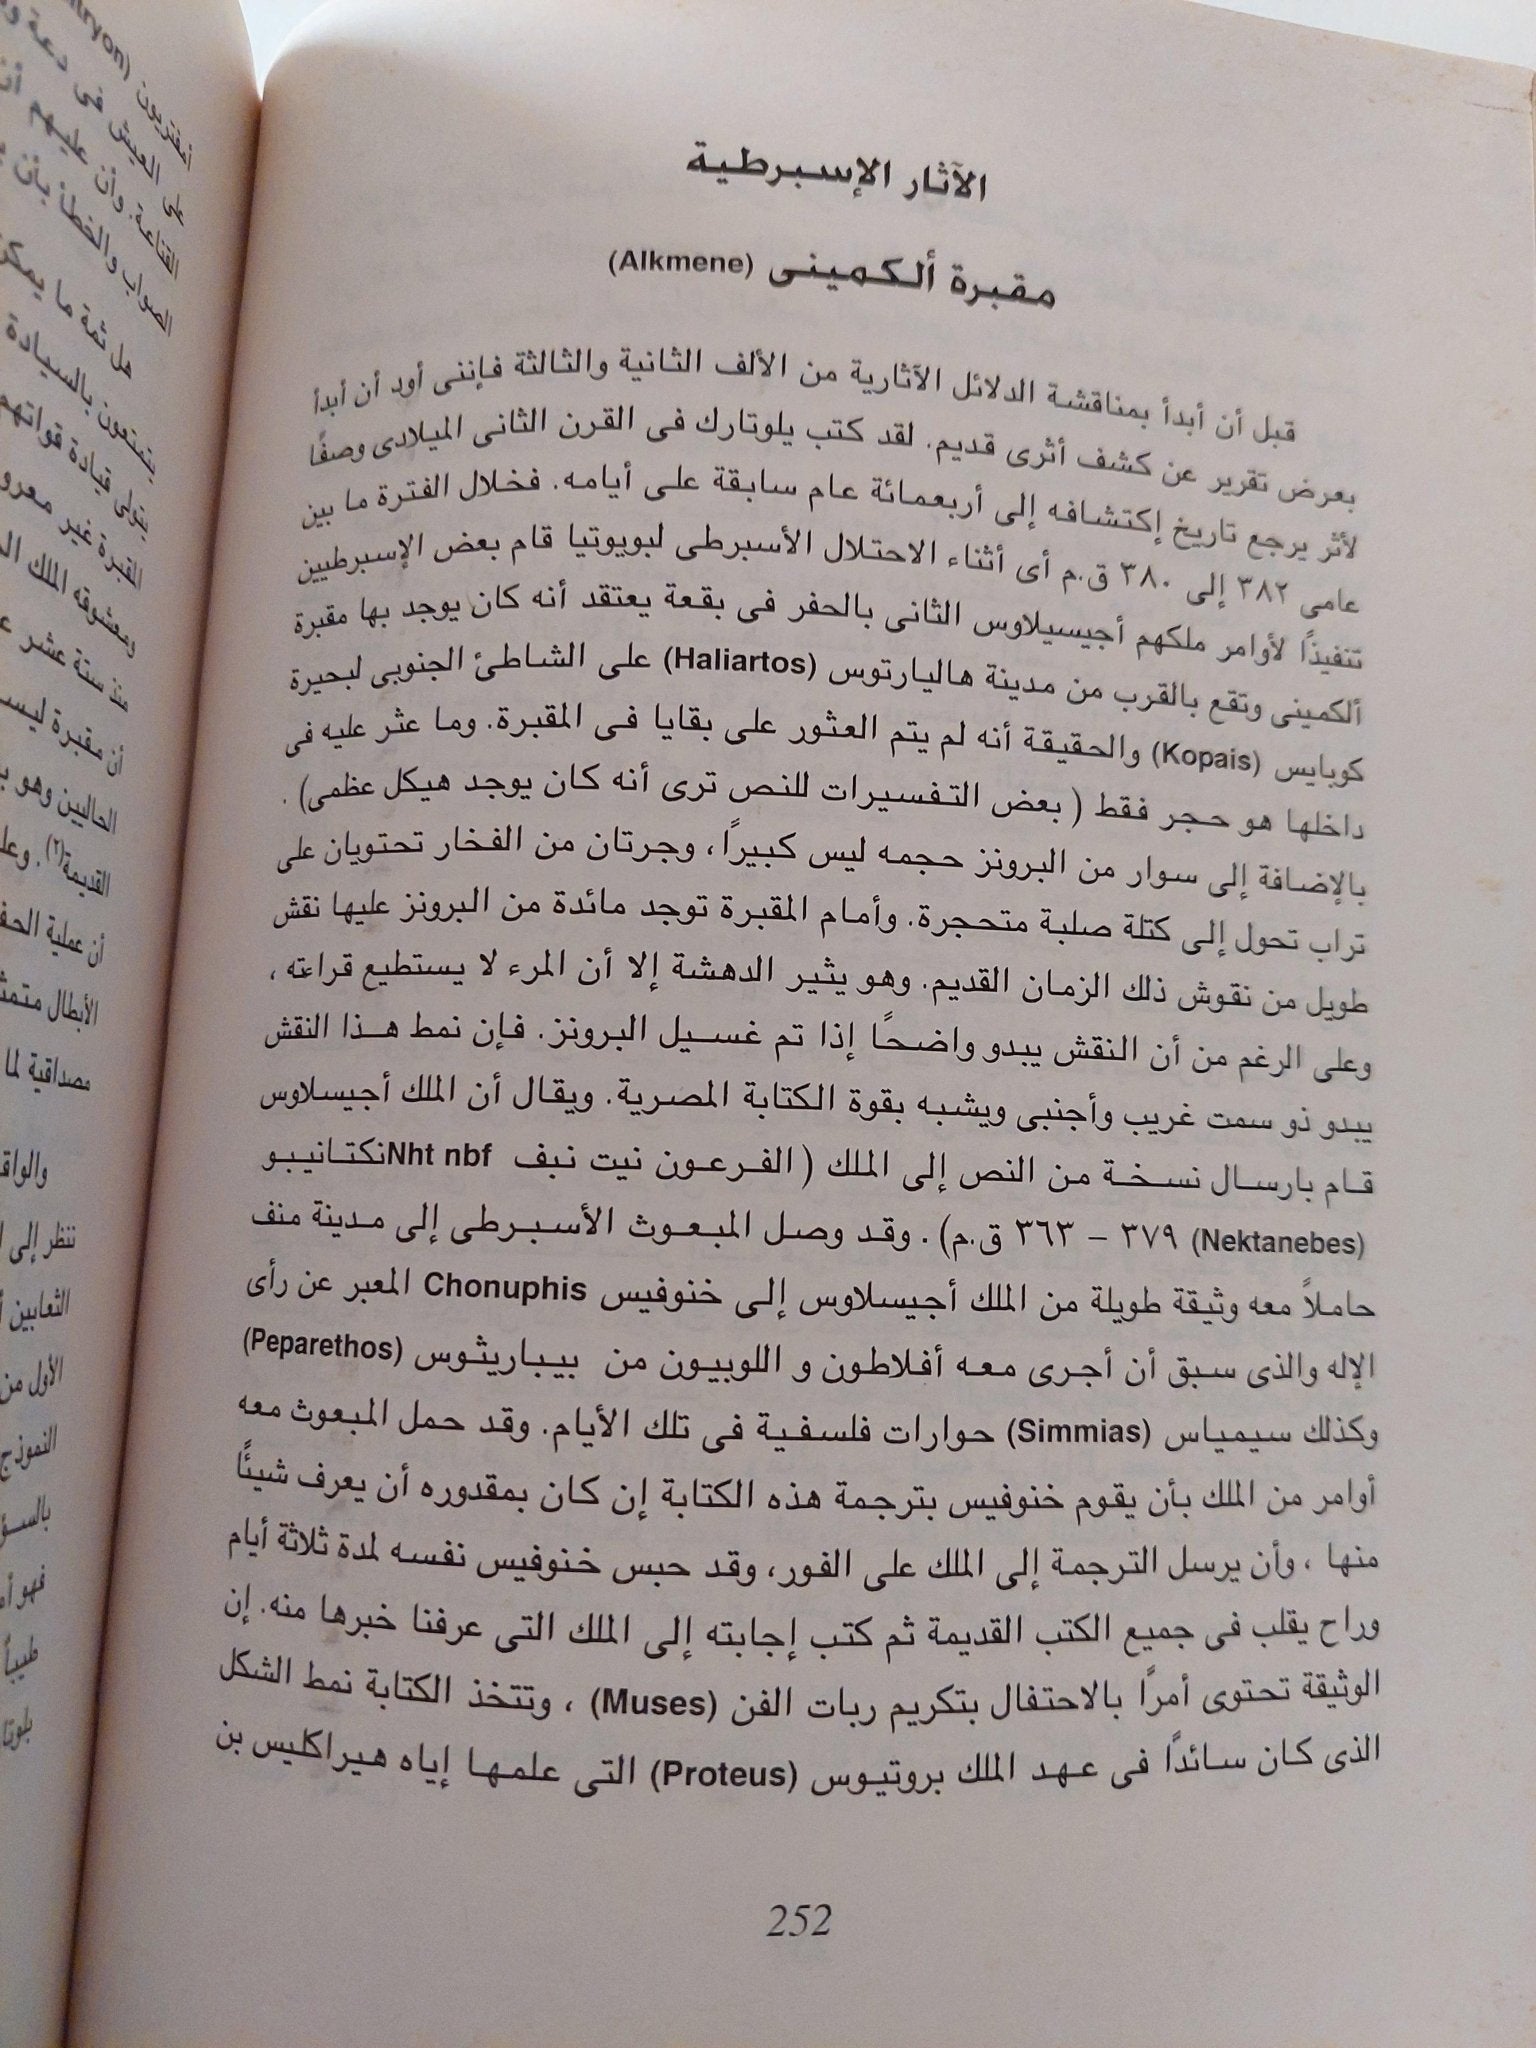 الآثار الإسبرطية
مقبرة ألكمينى (Alkmene)
قبل أن أبدأ بمناقشة الدلائل الآثارية من الألف الثانية والثالثة فإننى أود أن أبدأ
بعرض تقرير عن كشف أثرى قديم. لقد كتب يلوتارك فى القرن الثانى الميلادى وصفًا
لأثر يرجع تاريخ إكتشافه إلى أربعمائة عام سابقة على أيامه. فخلال الفترة ما بين
عامى ٣٨٢ إلى ٣٨٠ ق.م أى أثناء الاحتلال الأسبرطى لبويوتيا قام بعض الإسبرطيين
تنفيذًا لأوامر ملكهم أجيسيلاوس الثانى بالحفر فى بقعة يعتقد أنه كان يوجد بها مقبرة
ألكمينى وتقع بالقرب من مدينة هاليارتوس (Haliartos) على الشاطئ الجنوبى لبحيرة
كوبايس (Kopais) والحقيقة أنه لم يتم العثور على بقايا فى المقبرة. وما عثر عليه فى
داخلها هو حجر فقط ( بعض التفسيرات للنص ترى أنه كان يوجد هيكل عظمى) .
بالإضافة إلى سوار من البرونز حجمه ليس كبيرًا ، وجرتان من الفخار تحتويان على
تراب تحول إلى كتلة صلبة متحجرة. وأمام المقبرة توجد مائدة من البرونز عليها نقش
طويل من نقوش ذلك الزمان القديم. وهو يثير الدهشة إلا أن المرء لا يستطيع قراءته ،
وعلى الرغم من أن النقش يبدو واضحًا إذا تم غسيل البرونز. فإن نمط هذا النقش
يبدو ذو سمت غريب وأجنبى ويشبه بقوة الكتابة المصرية. ويقال أن الملك أجيسلاوس
قام بارسال نسخة من النص إلى الملك ( الفرعون نيت نبف Nht nbfنكتانيبو
(Nektanebes) ٣٧٩ – ٣٦٣ ق.م) . وقد وصل المبعوث الأسبرطى إلى مدينة منف
حاملاً معه وثيقة طويلة من الملك أجيسلاوس إلى خنوفيس Chonuphis المعبر عن رأى
الإله والذى سبق أن أجرى معه أفلاطون و اللوبيون من بيباريثوس (Peparethos)
وكذلك سيمياس (Simmias) حوارات فلسفية فى تلك الأيام. وقد حمل المبعوث معه
أوامر من الملك بأن يقوم خنوفيس بترجمة هذه الكتابة إن كان بمقدوره أن يعرف شيئًا
منها ، وأن يرسل الترجمة إلى الملك على الفور، وقد حبس خنوفيس نفسه لمدة ثلاثة أيام
وراح يقلب فى جميع الكتب القديمة ثم كتب إجابته إلى الملك التى عرفنا خبرها منه. إن
الوثيقة تحتوى أمرًا بالاحتفال بتكريم ربات الفن (Muses) ، وتتخذ الكتابة نمط الشكل
الذى كان سائدًا فى عهد الملك بروتيوس (Proteus) التى علمها إياه هيراكليس بن
252